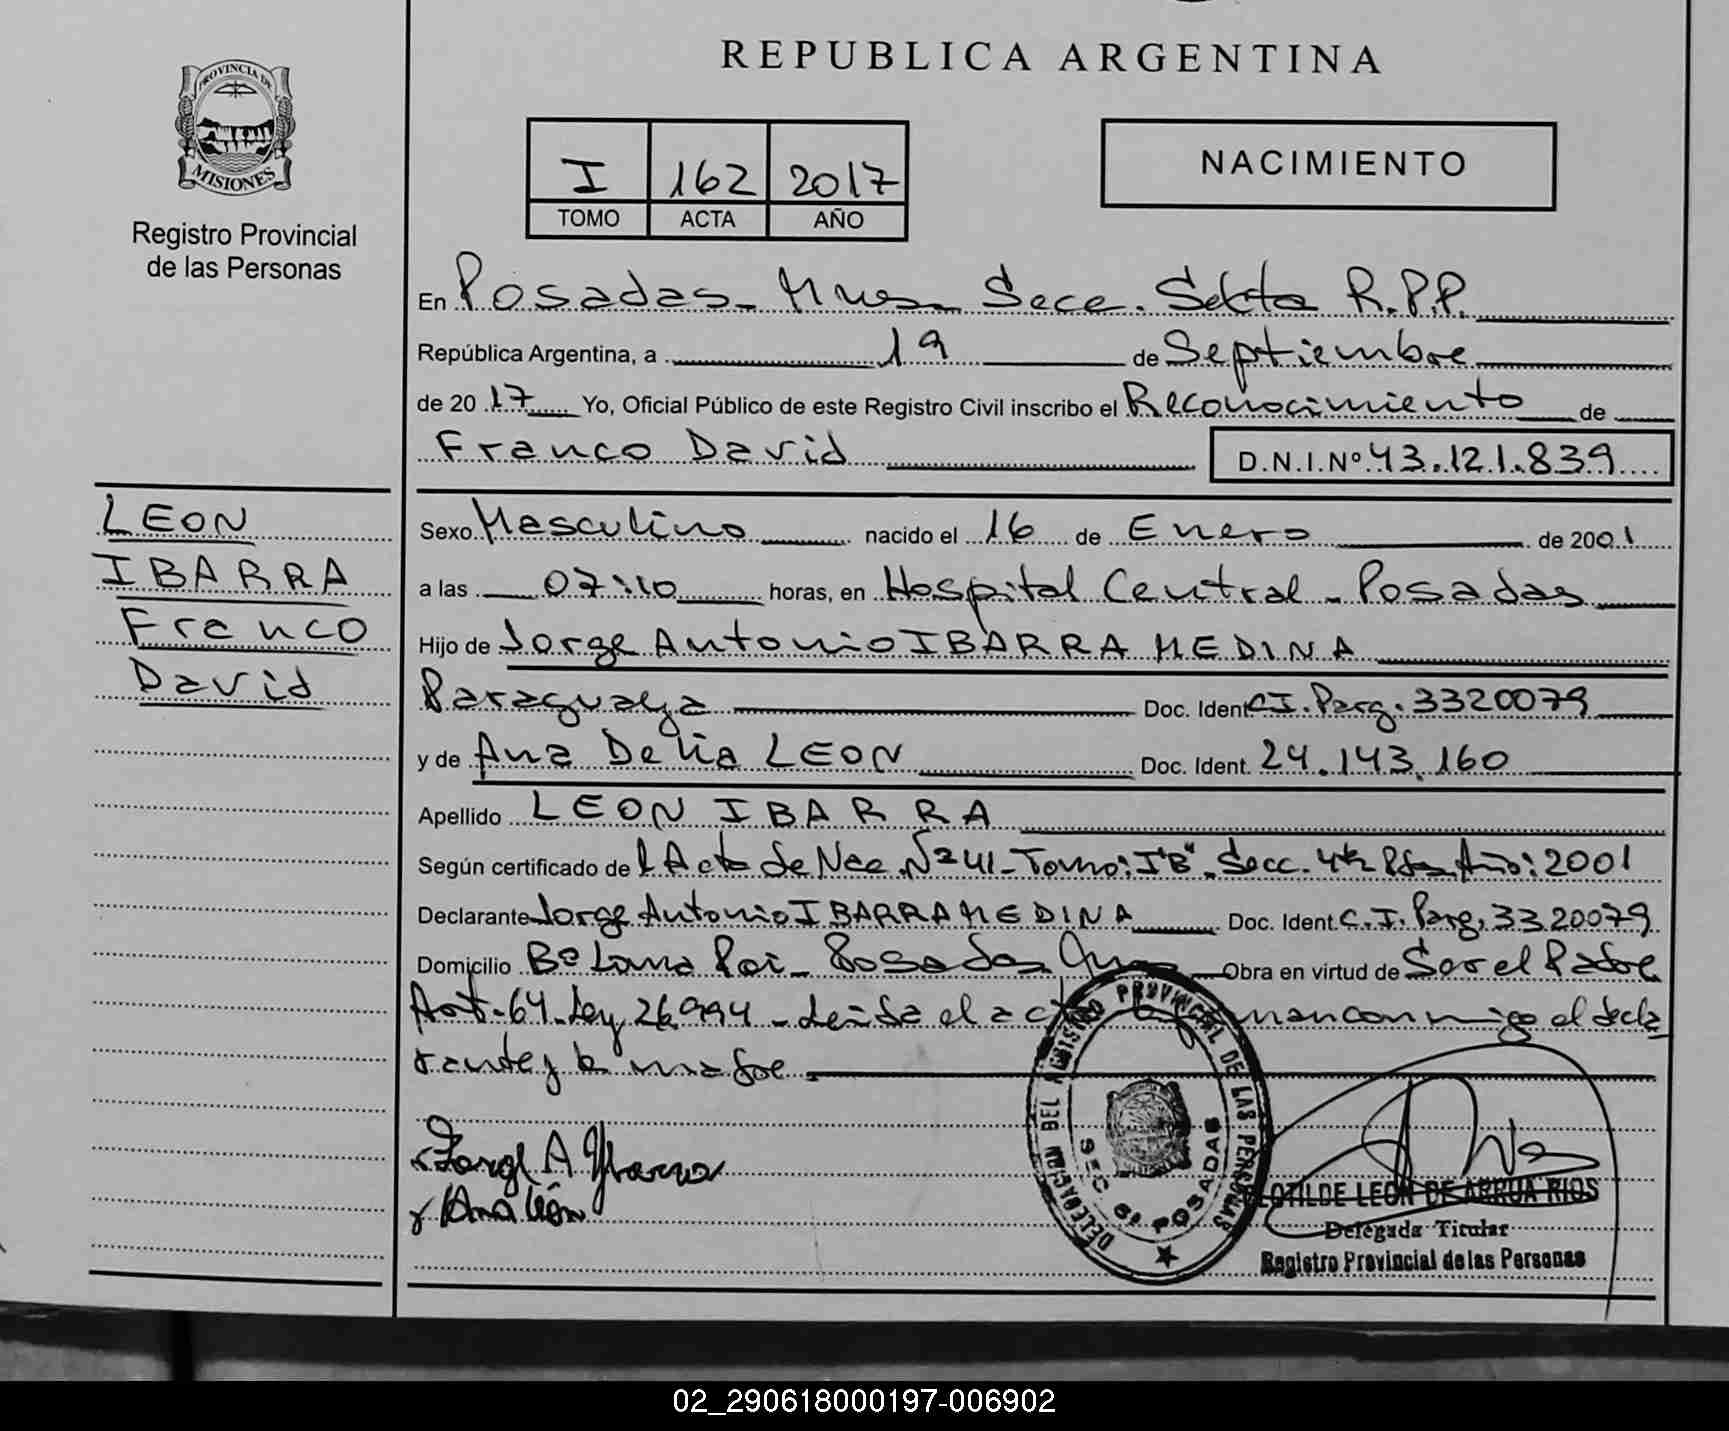 REPUBLICA ARGENTINA
PROVINCIA DE
MISIONES
Registro Provincial
de las Personas
I 162 2017
TOMO ACTA AÑO
NACIMIENTO
En Posadas - Mnes Secc. Sexta R.P.P.
República Argentina, a 19 de Septiembre
de 2017 Yo, Oficial Público de este Registro Civil inscribo el Reconocimiento de
Franco David D.N.I.Nº 43.121.839
LEON
IBARRA
Franco
David
Sexo Masculino nacido el 16 de Enero de 2001
a las 07:10 horas, en Hospital Central - Posadas
Hijo de Jorge Antonio IBARRA MEDINA
Paraguaya Doc. Ident. C.I. Parg. 3320079
y de Ana Delia LEON Doc. Ident. 24.143.160
Apellido LEON IBARRA
Según certificado de Acta de Nac. Nº 241 - Tomo: I"B". Secc. 4ta Año: 2001
Declarante Jorge Antonio IBARRA MEDINA Doc. Ident. C.I. Parg. 3320079
Domicilio Bº Loma Poi - Posadas Obra en virtud de Ser el Padre
Art. 64 Ley 26994 - Leída el acta firman conmigo el decla
rante y la madre
Jorge A Ybarra
Ana León
DELEGACION DEL REGISTRO PROVINCIAL DE LAS PERSONAS
SEC 6ª POSADAS
CLOTILDE LEON DE ARRUA RIOS
Delegada Titular
Registro Provincial de las Personas
02_290618000197-006902